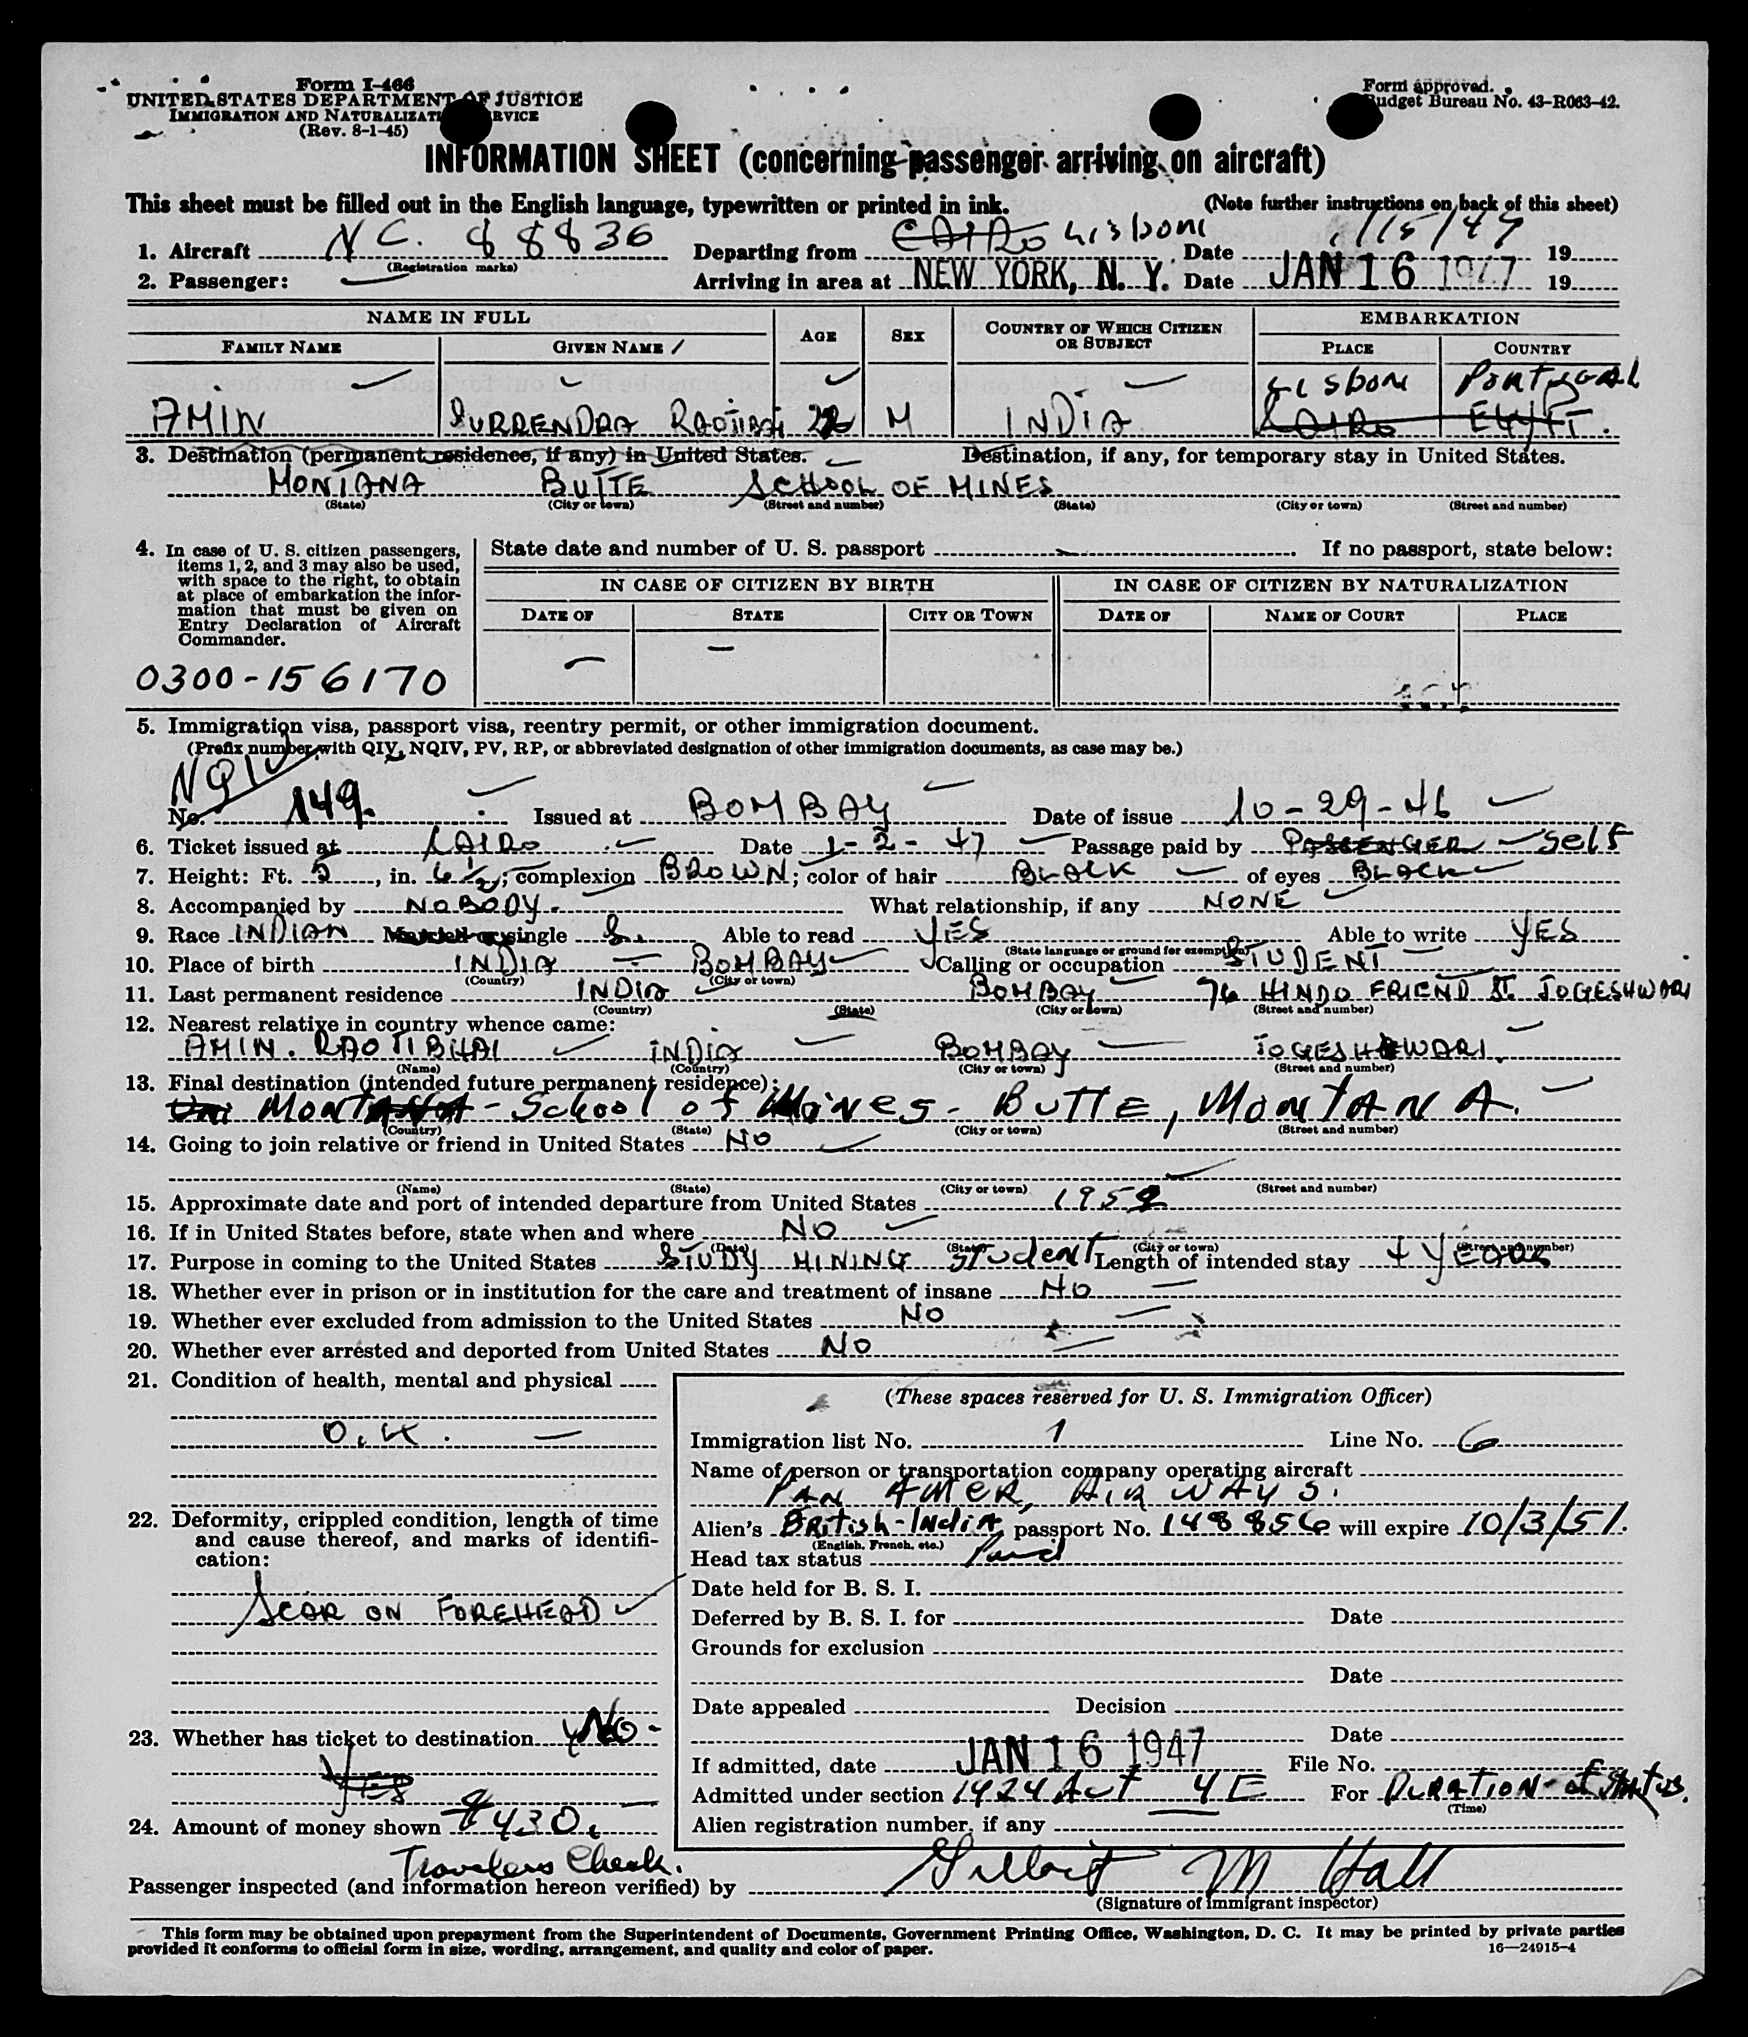 Form I-466
UNITED STATES DEPARTMENT OF JUSTICE
IMMIGRATION AND NATURALIZATION SERVICE
(Rev. 8-1-45)
Form approved.
Budget Bureau No. 43-R063-42.
INFORMATION SHEET (concerning passenger arriving on aircraft)
This sheet must be filled out in the English language, typewritten or printed in ink. (Note further instructions on back of this sheet)
1. Aircraft NC. 88836 Departing from CAIRO Lisbon Date 1/15/47 19
(Registration marks)
2. Passenger: Arriving in area at NEW YORK, N. Y. Date JAN 16 1947 19
NAME IN FULL AGE SEX COUNTRY OF WHICH CITIZEN OR SUBJECT EMBARKATION
FAMILY NAME GIVEN NAME PLACE COUNTRY
Lisbon Portugal
AMIN SURRENDRA RAOJIBAI M INDIA CAIRO EGYPT.
3. Destination (permanent residence, if any) in United States. Destination, if any, for temporary stay in United States.
MONTANA BUTTE SCHOOL OF MINES
(State) (City or town) (Street and number) (State) (City or town) (Street and number)
4. In case of U. S. citizen passengers, items 1, 2, and 3 may also be used, with space to the right, to obtain at place of embarkation the information that must be given on Entry Declaration of Aircraft Commander.
State date and number of U. S. passport . If no passport, state below:
IN CASE OF CITIZEN BY BIRTH IN CASE OF CITIZEN BY NATURALIZATION
DATE OF STATE CITY OR TOWN DATE OF NAME OF COURT PLACE
0300-156170
5. Immigration visa, passport visa, reentry permit, or other immigration document.
(Prefix number with QIV, NQIV, PV, RP, or abbreviated designation of other immigration documents, as case may be.)
NQIV
No. 149. Issued at BOMBAY Date of issue 10-29-46
6. Ticket issued at CAIRO Date 1-2-47 Passage paid by PASSENGER Self
7. Height: Ft. 5, in. 6 1/2; complexion BROWN; color of hair BLACK of eyes BLACK
8. Accompanied by NOBODY. What relationship, if any NONE
9. Race INDIAN Married or single S. Able to read YES Able to write YES
(State language or ground for exemption)
10. Place of birth INDIA BOMBAY Calling or occupation STUDENT
(Country) (City or town)
11. Last permanent residence INDIA BOMBAY 76 HINDO FRIEND St. JOGESHWARI
(Country) (State) (City or town) (Street and number)
12. Nearest relative in country whence came:
AMIN. RAOJIBHAI INDIA BOMBAY JOGESHWARI.
(Name) (Country) (City or town) (Street and number)
13. Final destination (intended future permanent residence):
MONTANA - School of Mines - BUTTE, MONTANA.
(Country) (State) (City or town) (Street and number)
14. Going to join relative or friend in United States NO
(Name) (State) (City or town) (Street and number)
15. Approximate date and port of intended departure from United States 1952
16. If in United States before, state when and where NO
(Date) (State) (City or town) (Street and number)
17. Purpose in coming to the United States STUDY MINING Student Length of intended stay 4 YEARS
18. Whether ever in prison or in institution for the care and treatment of insane NO
19. Whether ever excluded from admission to the United States NO
20. Whether ever arrested and deported from United States NO
21. Condition of health, mental and physical
O.K.
22. Deformity, crippled condition, length of time and cause thereof, and marks of identification:
SCAR ON FOREHEAD
23. Whether has ticket to destination No-
YES
24. Amount of money shown $430.
Travelers Check.
(These spaces reserved for U. S. Immigration Officer)
Immigration list No. 1 Line No. 6
Name of person or transportation company operating aircraft
PAN AMER. AIRWAYS.
Alien's BRITISH-INDIA passport No. 148856 will expire 10/3/51.
(English, French, etc.)
Head tax status Paid
Date held for B. S. I.
Deferred by B. S. I. for Date
Grounds for exclusion
Date
Date appealed Decision
Date
If admitted, date JAN 16 1947 File No.
Admitted under section 1924 Act 4E For DURATION - of Status.
(Time)
Alien registration number, if any
Passenger inspected (and information hereon verified) by Gilbert M Hall
(Signature of immigrant inspector)
This form may be obtained upon prepayment from the Superintendent of Documents, Government Printing Office, Washington, D. C. It may be printed by private parties
provided it conforms to official form in size, wording, arrangement, and quality and color of paper. 16—24915-4